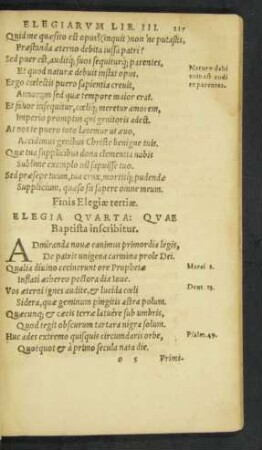 ELEGIARVM LIB. III. 217
Quid me quæsito est opus? (inquit) non'ne putastis,
Præstanda æterno debita iussa patri?
Sed puer est, auditq́; suos sequiturq́; parentes,
Et quod naturæ debuit instat opus.
Naturæ debitum
est audire
parentes.
Ergo cœlestis puero sapientia creuit,
Annorum sed quæ tempore maior erat.
Et fauor insequitur, cœliq́; meretur amorem,
Imperio promptus qui genitoris adest.
At nos te puero toto lætemur in æuo,
Accidimus genibus Christe benigne tuis.
Quæ tua supplicibus dona clementia nobis
Sublime exemplo nil sapuisse tuo.
Sed præsepe tuum, tua crux, morsitiq́; pudendæ
Supplicium, quæso sit sapere omne meum.
Finis Elegiæ tertiæ.
ELEGIA QVARTA: QVAE
Baptista inscribitur.
ADmiranda nouæ canimus primordia legis,
De patrit unigena carmina prole Dei.
Qualia diuino cecinerunt ore Prophetæ
Malac. 1.
Inflati æthereo pectora dia toue.
Vos æterni ignes audite, & lucida cœli
Deut. 13.
Sidera, quæ geminum pingitis astra polum.
Quæcunq́; & cæcis terræ latuêre sub umbris,
Quod tegit obscurum tartara nigra solum.
Huc ades extremo quisquis circumdaris orbe,
Psalm. 49.
Quotquot & à primo secula nata die.
o 5 Primi-